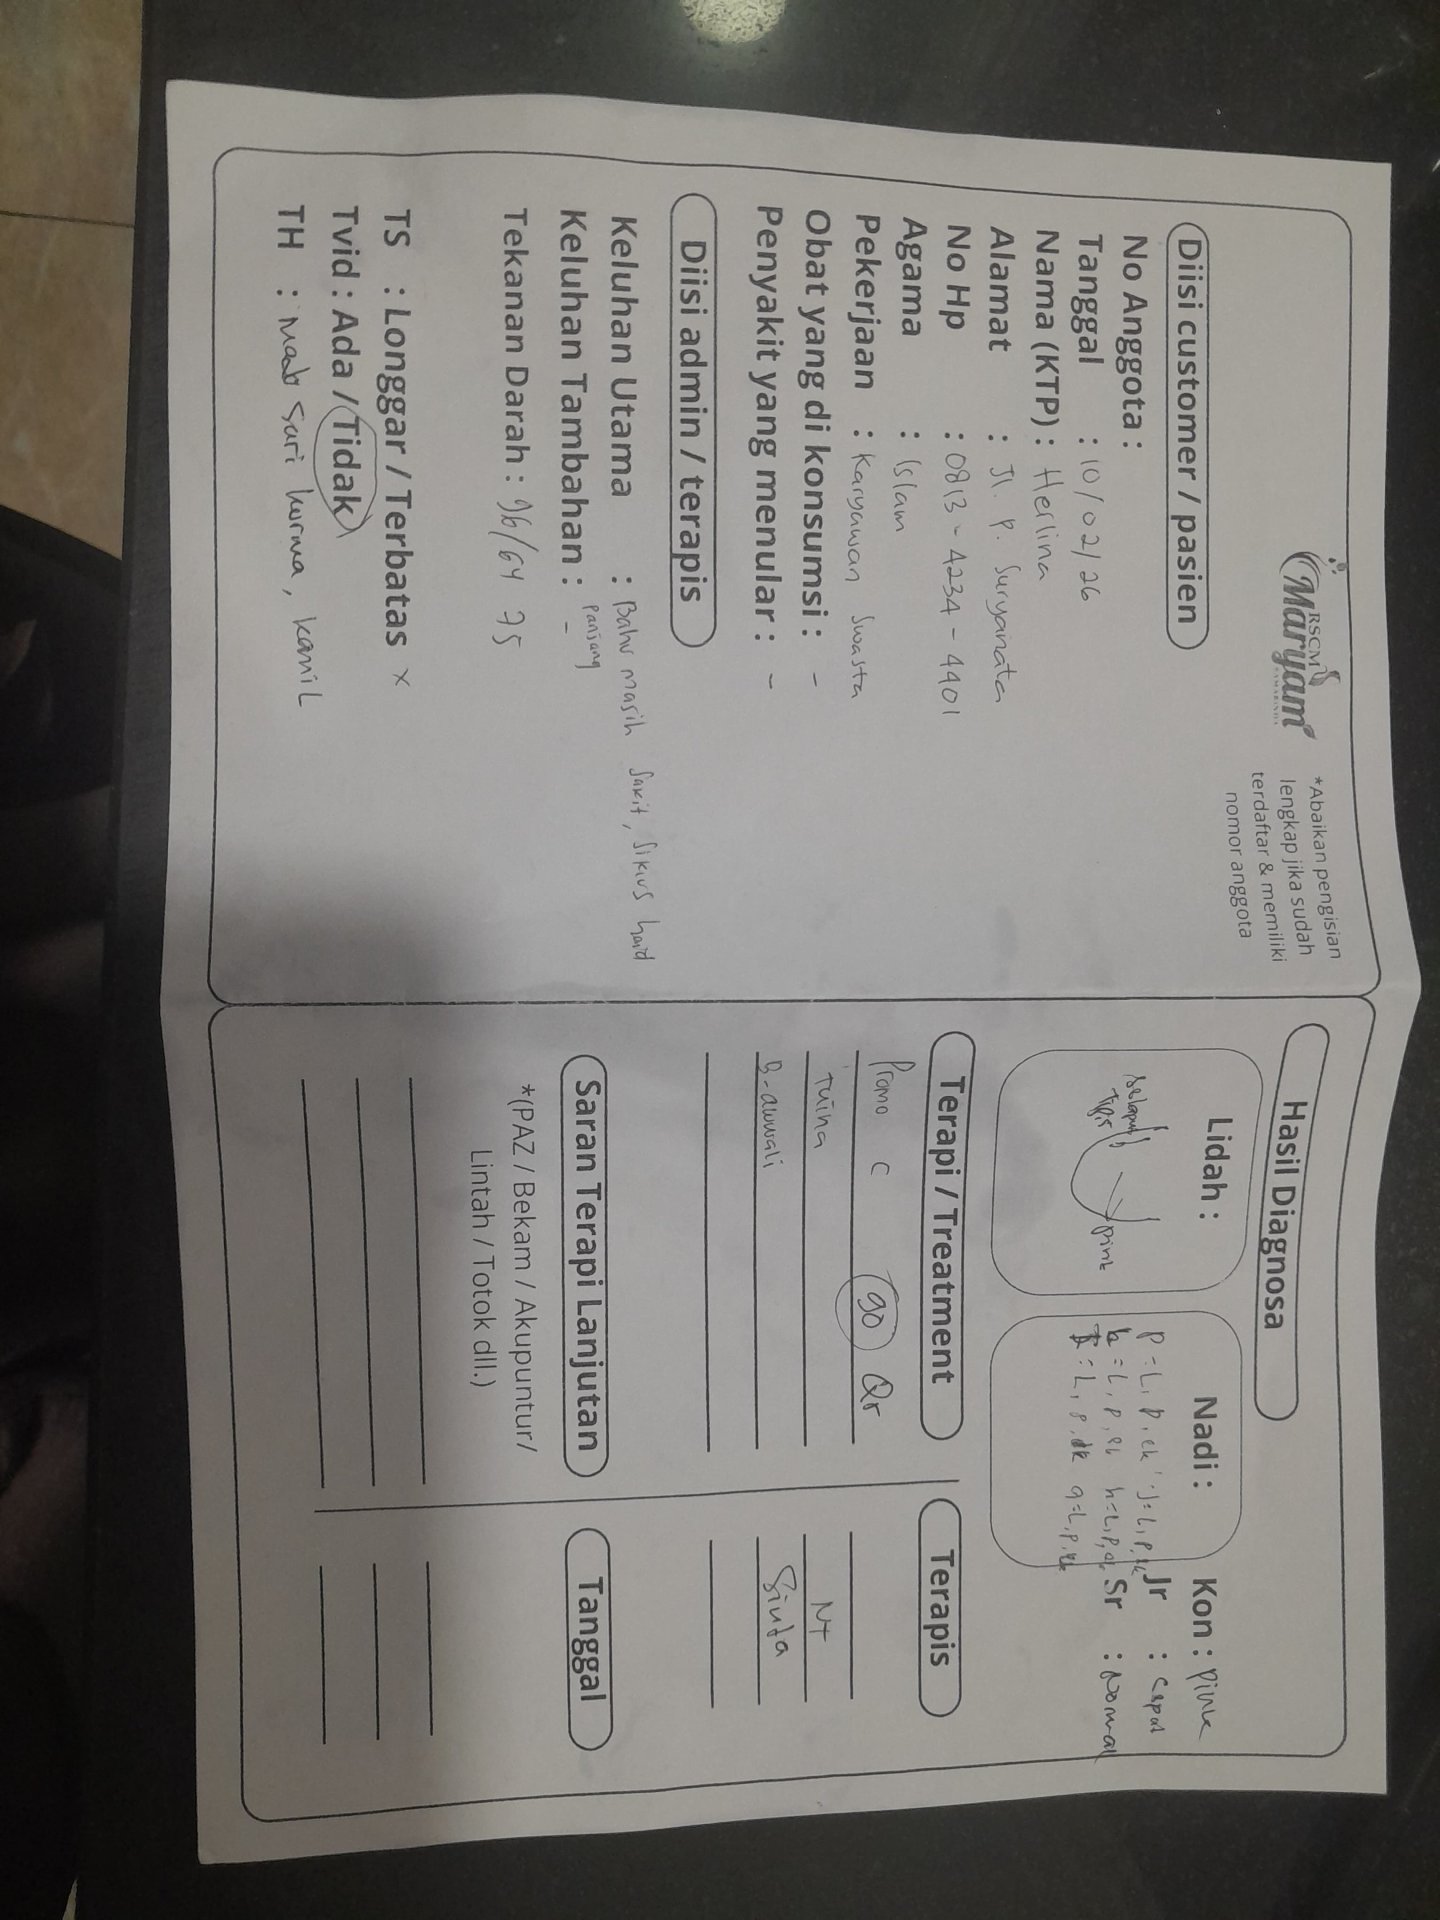 RSCM
Maryam
SAMARINDA
*Abaikan pengisian
lengkap jika sudah
terdaftar & memiliki
nomor anggota
Diisi customer / pasien
No Anggota :
Tanggal : 10/02/26
Nama (KTP) : Herlina
Alamat : Jl. P. Suryanata
No Hp : 0813 - 4234 - 4401
Agama : Islam
Pekerjaan : Karyawan Swasta
Obat yang di konsumsi : -
Penyakit yang menular : -
Diisi admin / terapis
Keluhan Utama : Bahu masih sakit, sikius haid
panjang
Keluhan Tambahan : -
Tekanan Darah : 96/64 75
TS : Longgar / Terbatas x
Tvid : Ada / Tidak
TH : Madu sari kurma, kamil
Hasil Diagnosa
Lidah :
selaput
tipis
pink
Nadi :
P = L, P, ck J = L, P,
h = L, P,
= L, P, q = L, P,
Kon : Pink
Jr : Cepat
Sr : Normal
Terapi / Treatment
Promo C 90 Qr
Tuina
B-awwali
Terapis
N+
Sinta
Saran Terapi Lanjutan
*(PAZ / Bekam / Akupuntur/
Lintah / Totok dll.)
Tanggal